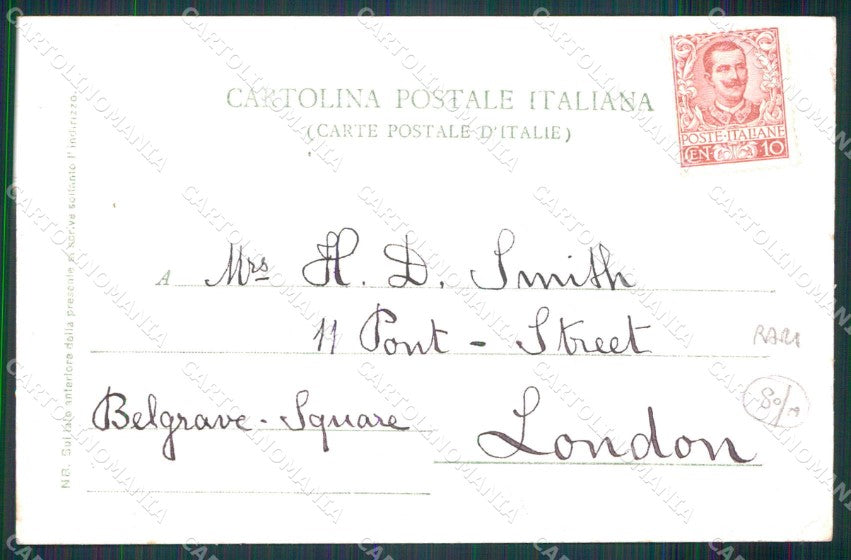 CARTOLINA POSTALE ITALIANA
(CARTE POSTALE D'ITALIE)
POSTE·ITALIANE
CEN. 10
A Mrs H. D. Smith
11 Pont - Street
Belgrave - Square
London
RARI
80/M
NB. Sul lato anteriore della presente si scrive soltanto l'indirizzo.
CARTOLINOMANIA